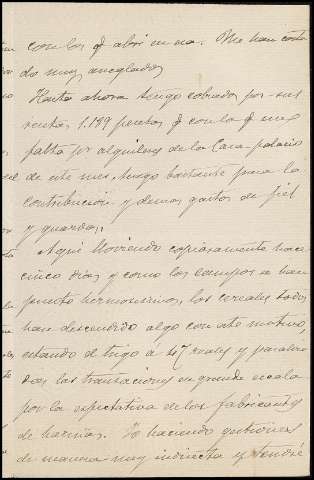 con los q abri
do muy arreglados
Hasta ahora tengo cobradas por sus
rentas, 1.199 pesetas q con lo q me
falta pr alquileres de la Casa-palacio
de este mes, tengo bastante para la
contribucion y demas gastos de fiel
y guardas.
Aqui lloviendo copiosamente hace
cinco dias y como los campos se han
puesto hermosisimos, los cereales todos
han descendido algo con este motivo,
estando el trigo á 47 reales y paraliza
das las transaciones en grande escala
por la expectativa de los fabricantes
de harinas. Yo haciendo gestiones
de manera muy indirecta y tendré